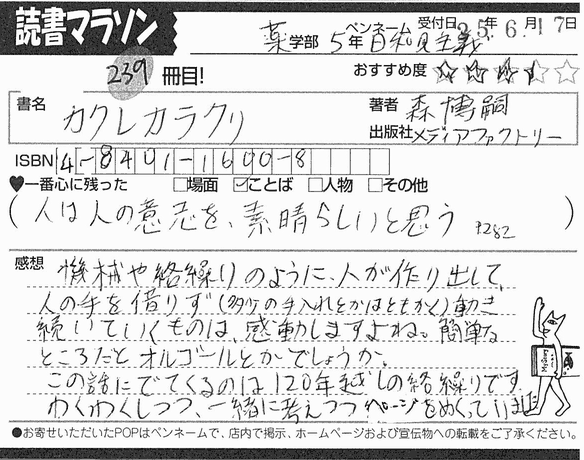 読書マラソン
薬学部 5年 ペンネーム 自給自主義 受付日 25年6月17日
239冊目! おすすめ度 ☆☆☆☆☆
書名 カクレカラクリ 著者 森博嗣
出版社 メディアファクトリー
ISBN 4-8401-1600-8
♥一番心に残った □場面 ☑ことば □人物 □その他
(人は人の意志を、素晴らしいと思う P282)
感想 機械や絡繰りのように、人が作り出して、
人の手を借りず(多少の手入れとかはともかく)動き
続いていくものは、感動しますよね。簡単な
ところだと オルゴールとかでしょうか。
この話にでてくるのは120年越しの絡繰りです
わくわくしつつ、一緒に考えつつページをめくっていました
●お寄せいただいたPOPはペンネームで、店内で掲示、ホームページおよび宣伝物への転載をご了承ください。